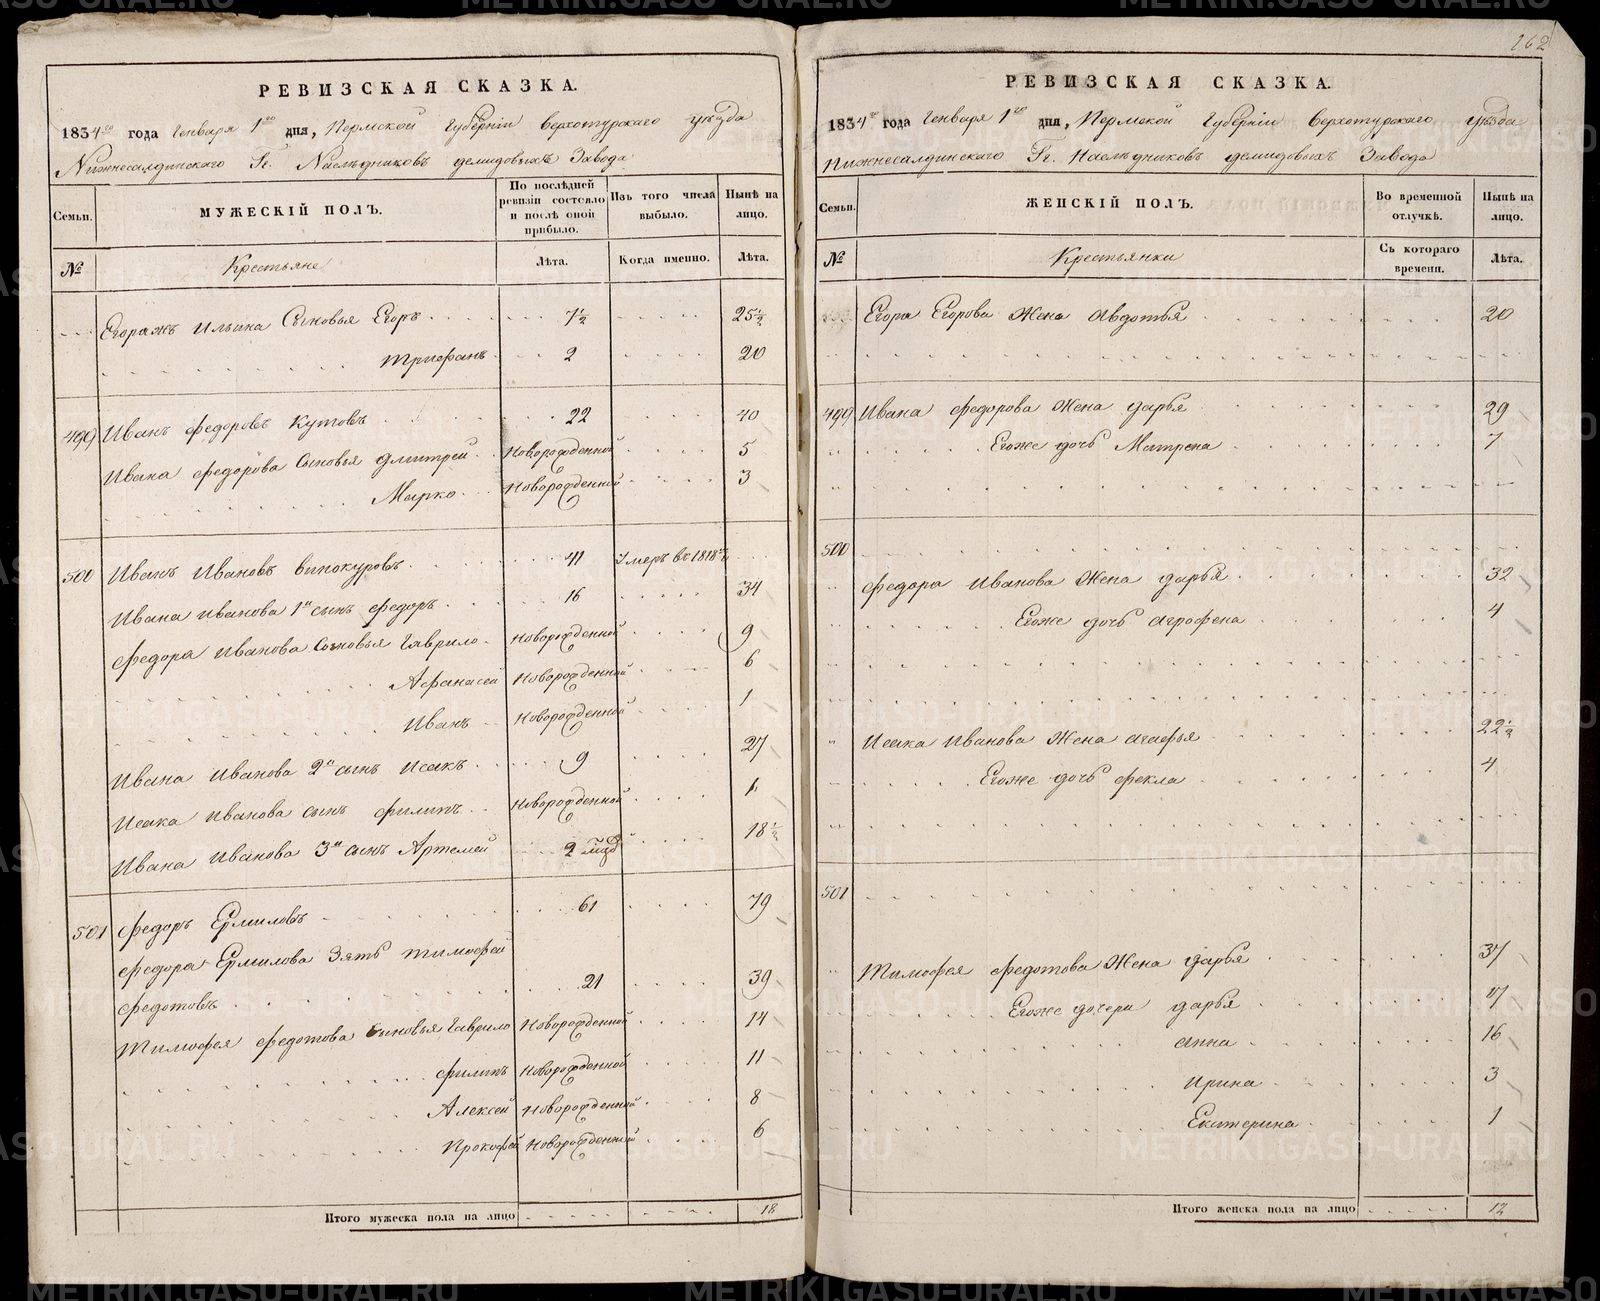 262
РЕВИЗСКАЯ СКАЗКА.
1834го года Генваря 1го дня, Пермской Губерніи Верхотурскаго уѣзда
Нижнесалдинскаго Гг. Наслѣдниковъ Демидовыхъ Завода
Семьи. МУЖЕСКІЙ ПОЛЪ. По послѣдней ревизіи состояло и послѣ оной прибыло. Изъ того числа выбыло. Нынѣ на лицо.
№ Крестьяне Лѣта. Когда именно. Лѣта.
Ильина Сыновья Егоръ 7½ 25½
Трифанъ 2 20
499 Иванъ Федоровъ Кутовъ 22 40
Ивана Федорова Сыновья Дмитрей Новорожденной 5
Марко Новорожденной 3
500 Иванъ Ивановъ Винокуровъ 41 Умеръ въ 1818
Ивана Иванова 1й сынъ Федоръ 16 34
Федора Иванова Сыновья Гаврило Новорожденной 9
Афанасей Новорожденной 6
Иванъ Новорожденной 1
Ивана Иванова 2й сынъ Исакъ 9 27
Исака Иванова сынъ Филипъ Новорожденной 1
Ивана Иванова 3й сынъ Артемей 2 мцд 18½
501 Федоръ Ермиловъ 61 79
Федора Ермилова Зять Тимофей
Федотовъ 21 39
Тимофея Федотова Сыновья Гаврило Новорожденной 14
Филипъ Новорожденной 11
Алексей Новорожденной 8
Прокофей Новорожденной 6
Итого мужеска пола на лицо 18
РЕВИЗСКАЯ СКАЗКА.
1834го года Генваря 1го дня, Пермской Губерніи Верхотурскаго уѣзда
Нижнесалдинскаго Гг. Наслѣдниковъ Демидовыхъ Завода
Семьи. ЖЕНСКІЙ ПОЛЪ. Во временной отлучкѣ. Нынѣ на лицо.
№ Крестьянки Съ котораго времени. Лѣта.
Егора Егорова Жена Авдотья 20
499 Ивана Федорова Жена Дарья 29
Егоже дочь Матрена 7
500
Федора Иванова Жена Дарья 32
Егоже дочь Агрофена 4
Исака Иванова Жена Агафья 22½
Егоже дочь Фекла 4
501
Тимофея Федотова Жена Дарья 37
Егоже дочери Дарья 17
Анна 16
Ирина 3
Екатерина 1
Итого женска пола на лицо 12
METRIKI.GASO-URAL.RU